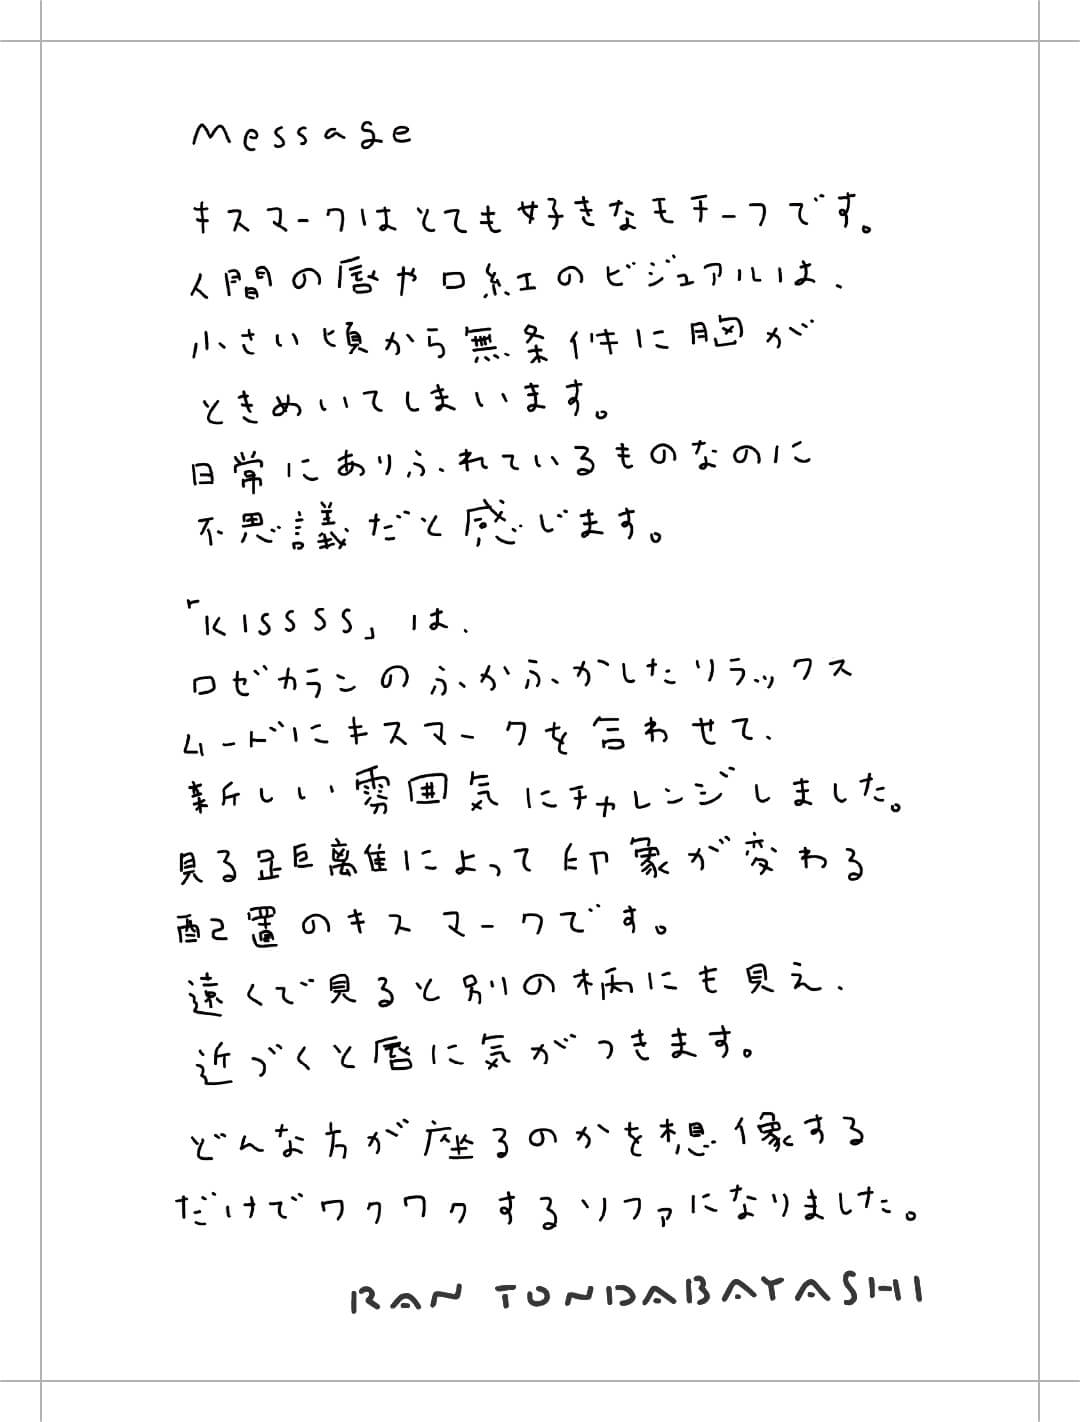 Message
キスマークはとても好きなモチーフです。
人間の唇や口紅のビジュアルは、
小さい頃から無条件に胸が
ときめいてしまいます。
日常にありふれているものなのに
不思議だと感じます。
「KISSSS」は、
ロゼカランのふかふかしたリラックス
ムードにキスマークを合わせて、
新しい雰囲気にチャレンジしました。
見る距離によって印象が変わる
配置のキスマークです。
遠くで見ると別の柄にも見え、
近づくと唇に気がつきます。
どんな方が座るのかを想像する
だけでワクワクするソファになりました。
RAN TONDABAYASHI